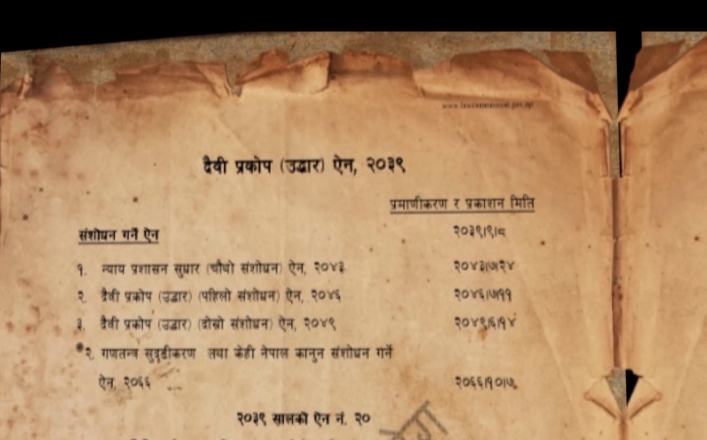 www.lawcommission.gov.np
दैवी प्रकोप (उद्धार) ऐन, २०३९
प्रमाणीकरण र प्रकाशन मिति
२०३९।९।८
संशोधन गर्ने ऐन
१. न्याय प्रशासन सुधार (चौथो संशोधन) ऐन, २०४३ २०४३।७।२४
२. दैवी प्रकोप (उद्धार) (पहिलो संशोधन) ऐन, २०४६ २०४६।७।११
३. दैवी प्रकोप (उद्धार) (दोस्रो संशोधन) ऐन, २०४९ २०४९।६।१४
२. गणतन्त्र सुदृढीकरण तथा केही नेपाल कानून संशोधन गर्ने
ऐन, २०६६ २०६६।१०।७
२०३९ सालको ऐन नं. २०